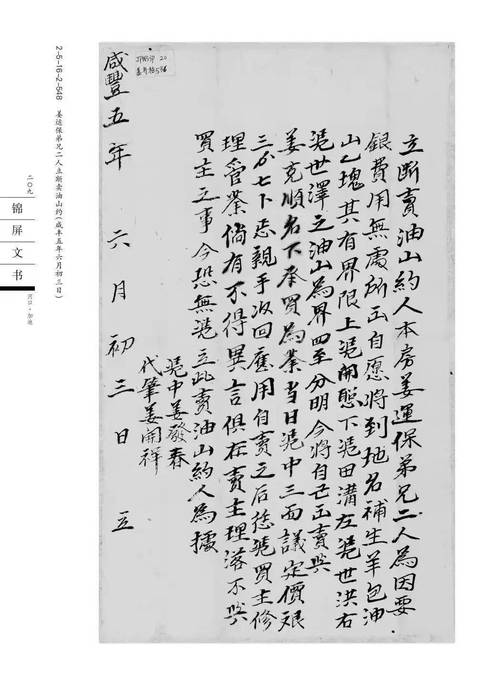 立断賣油山約人本房姜運保弟兄二人為因要
銀費用無處所出自愿將到地名補生羊包油
山乙塊其有界限上凴開態下凴田溝左凴世洪右
凴世澤之油山為界四至分明今將自己出賣與
姜克順名下承買為業當日凴中三面議定價艮
三分七卜忝親手收回應用自賣之后恁凴買主修
理管業倘有不得異言俱在賣主理落不與
買主之事今恐無凴立此賣油山約人為據
凴中姜發春
代筆姜開祥
咸豐五年 六月 初三日 立
2-5-16-2-548 姜运保弟兄二人立断卖油山约(咸丰五年六月初三日)
二〇九
锦屏文书
河口·加池